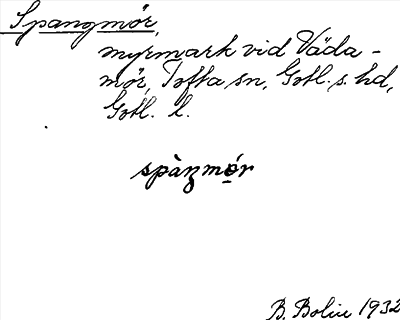 Spangmör,
myrmark vid Väda-
mör, Tofta sn, Gotl. s. hd,
Gotl. l.
spàŋmọ́r
B. Bolin 1932